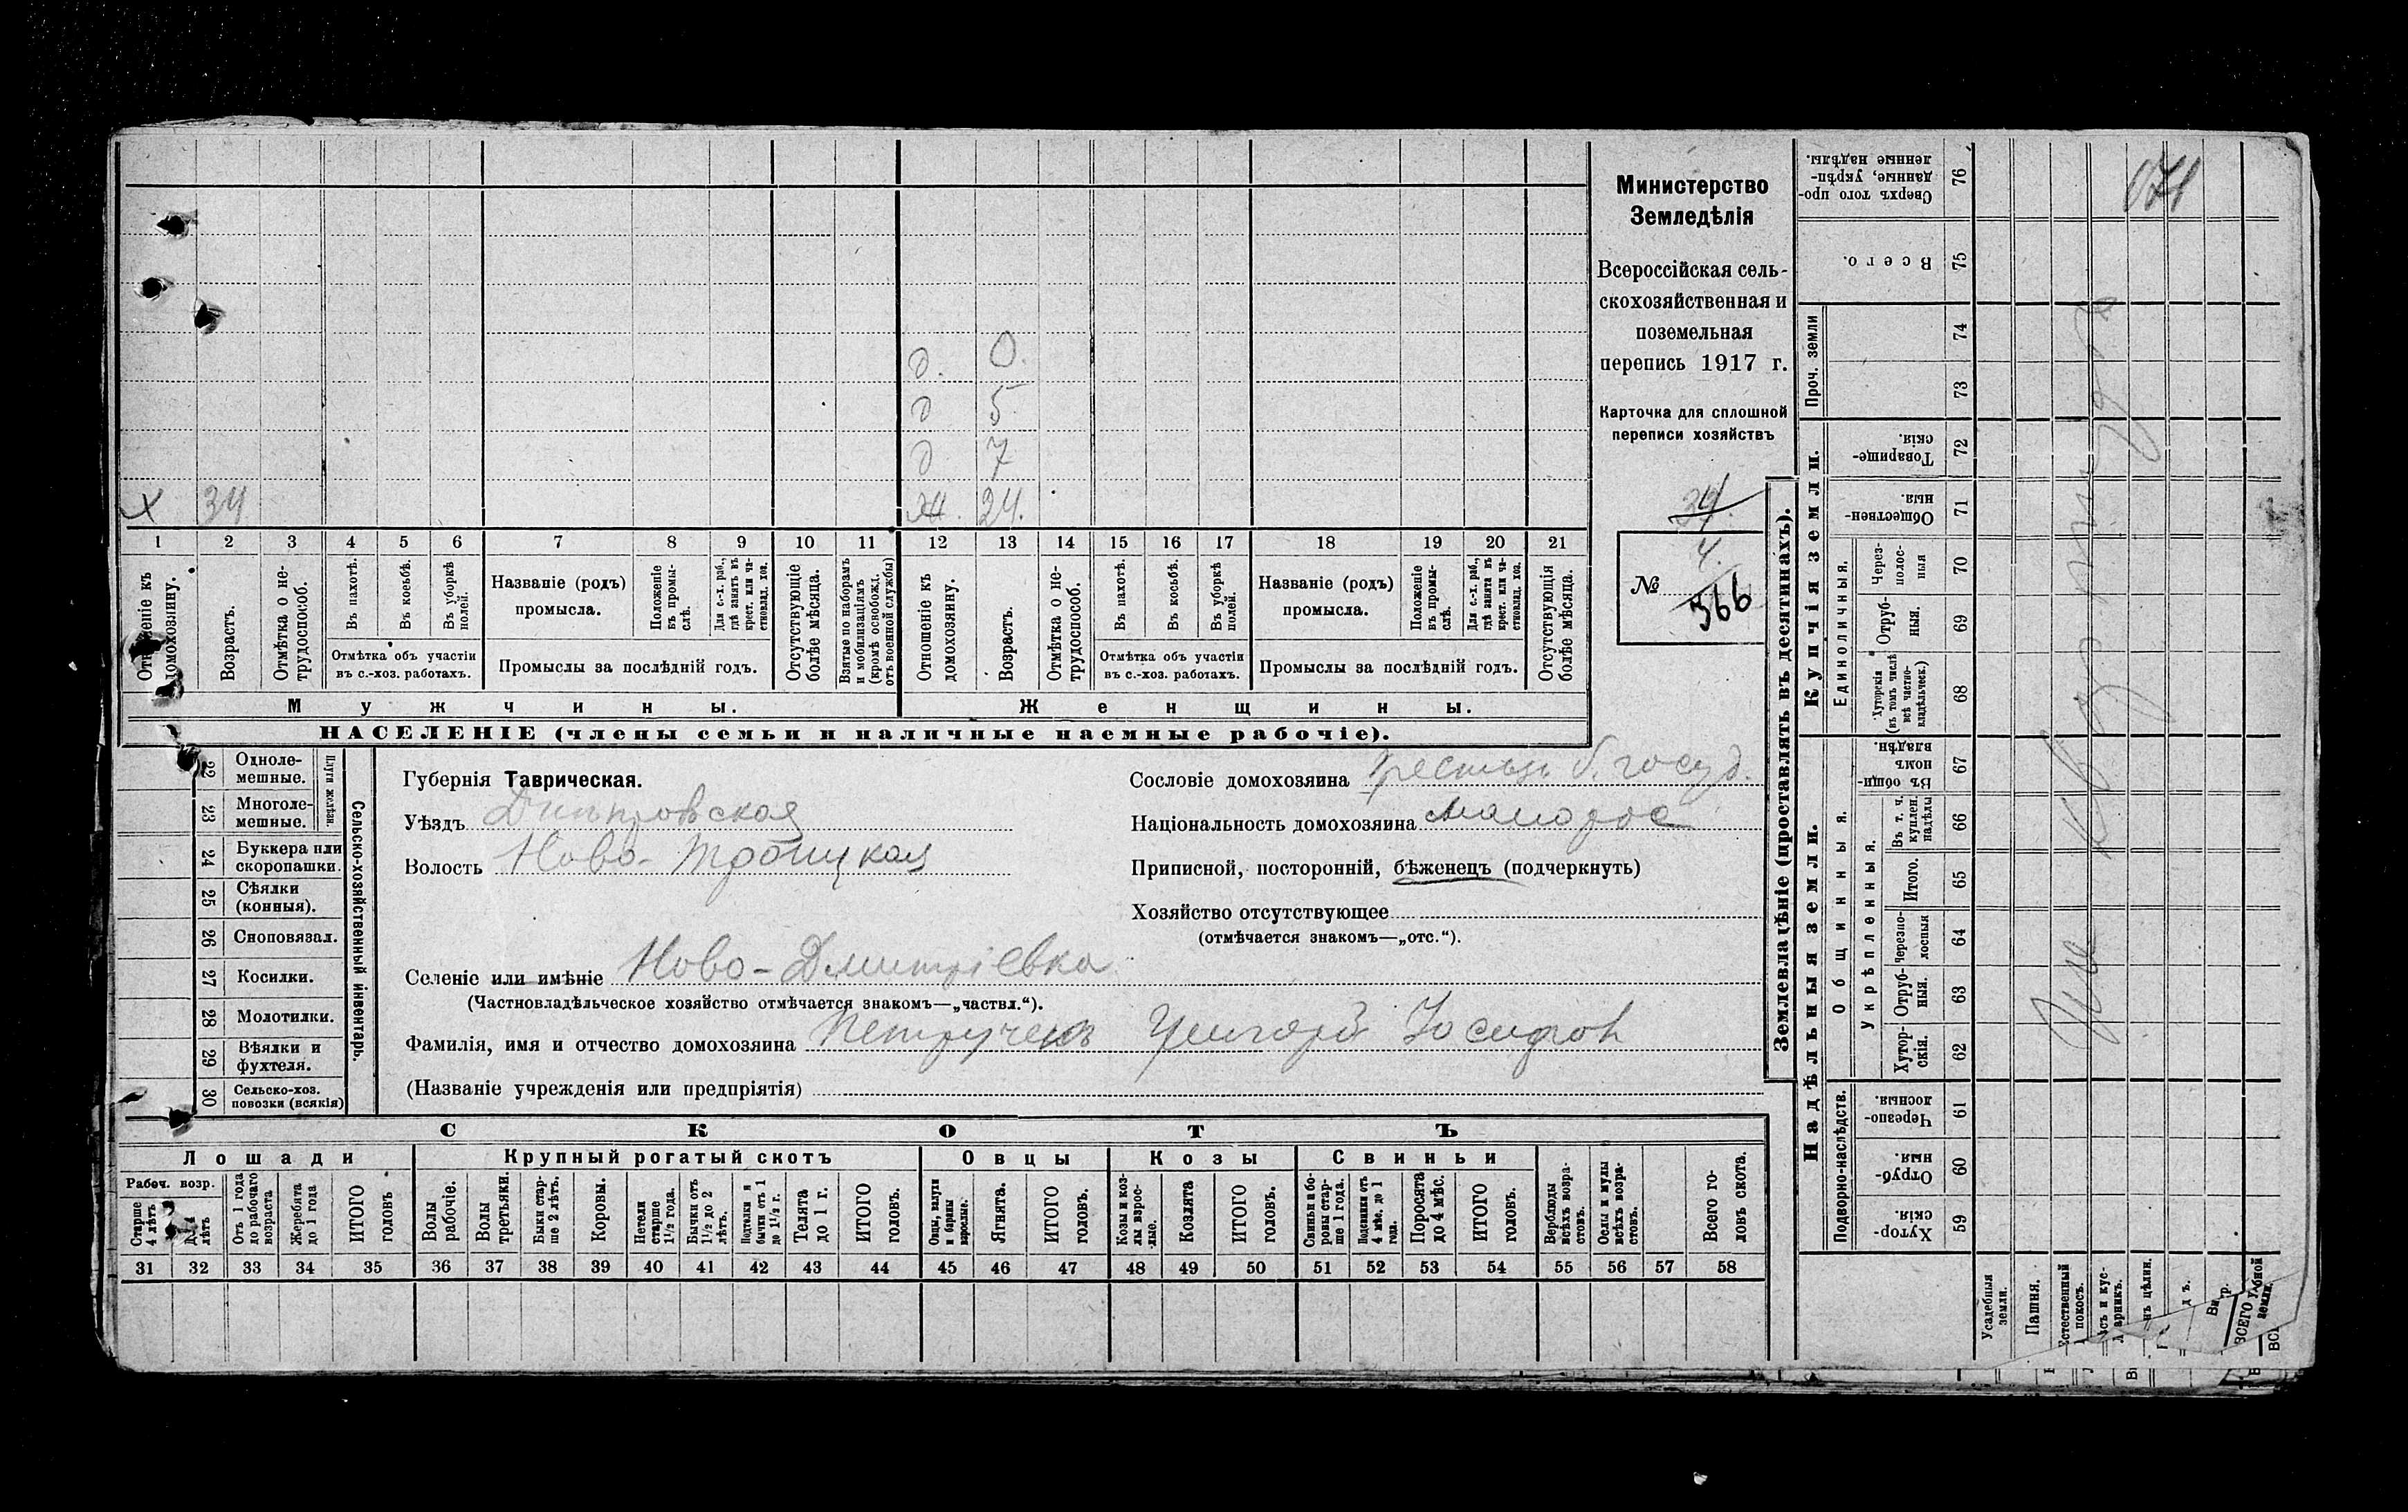 Министерство
Земледѣлія
Всероссійская сель-
скохозяйственная и
поземельная
перепись 1917 г.
Карточка для сплошной
переписи хозяйствъ
34.
№ 4.
366
д. 0.
д 5
д 7
х 34
ж. 24.
1 2 3 4 5 6 7 8 9 10 11 12 13 14 15 16 17 18 19 20 21
Отношеніе къ домохозяину.
Возрастъ.
Отмѣтка о не-
трудоспособ.
Въ пахотѣ.
Въ косьбѣ.
Въ уборкѣ
полей.
Отмѣтка объ участіи
въ с.-хоз. работахъ.
Названіе (родъ)
промысла.
Положеніе
въ промы-
слѣ.
Для с.-х. раб.,
гдѣ занятъ въ
крест. или ча-
стновлад. хоз.
Промыслы за послѣдній годъ.
Отсутствующіе
болѣе мѣсяца.
Взятые по наборамъ
и мобилизаціямъ
(кромѣ освобожд.
отъ военной службы)
Отношеніе къ
домохозяину.
Возрастъ.
Отмѣтка о не-
трудоспособ.
Въ пахотѣ.
Въ косьбѣ.
Въ уборкѣ
полей.
Отмѣтка объ участіи
въ с.-хоз. работахъ.
Названіе (родъ)
промысла.
Положеніе
въ промы-
слѣ.
Для с.-х. раб.,
гдѣ занята въ
крест. или ча-
стновлад. хоз.
Промыслы за послѣдній годъ.
Отсутствующія
болѣе мѣсяца.
Мужчины.
Женщины.
НАСЕЛЕНІЕ (члены семьи и наличные наемные рабочіе).
22 Одноле-
мешные.
23 Многоле-
мешные.
Плуги желѣзн.
24 Буккера или
скоропашки.
25 Сѣялки
(конныя).
26 Сноповязал.
27 Косилки.
28 Молотилки.
29 Вѣялки и
фухтеля.
30 Сельско-хоз.
повозки (всякія)
Сельско-хозяйственный инвентарь.
Губернія Таврическая.
Уѣздъ Днѣпровская
Волость Ново-Троицкая
Селеніе или имѣніе Ново-Дмитріевка
(Частновладѣльческое хозяйство отмѣчается знакомъ—„частвл.“).
Фамилія, имя и отчество домохозяина Григорій Іосифов
(Названіе учрежденія или предпріятія)
Сословіе домохозяина б. госуд.
Національность домохозяина малорос
Приписной, посторонній, бѣженецъ (подчеркнуть)
Хозяйство отсутствующее
(отмѣчается знакомъ—„отс.“).
СКОТЪ
Лошади
Крупный рогатый скотъ
Овцы
Козы
Свиньи
Рабоч. возр.
Старше
4 лѣтъ
лѣтъ
Отъ 1 года
до рабочаго
возраста
Жеребята
до 1 года
ИТОГО
головъ
Волы
рабочіе.
Волы
третьяки.
Быки стар-
ше 2 лѣтъ.
Коровы.
Нетели
старше
1½ года.
Бычки отъ
1½ до 2
лѣтъ.
Подтелки и
бычки отъ 1
до 1½ г.
Телята
до 1 г.
ИТОГО
головъ.
Овцы, валухи
и бараны
взрослые.
Ягнята.
ИТОГО
головъ.
Козы и коз-
лы взрос-
лые.
Козлята
ИТОГО
головъ.
Свиньи и бо-
ровы стар-
ше 1 года.
Подсвинки отъ
4 мѣс. до 1
года.
Поросята
до 4 мѣс.
ИТОГО
головъ.
Верблюды
всѣхъ возра-
стовъ.
Ослы и мулы
всѣхъ возра-
стовъ.
Всего го-
ловъ скота.
31 32 33 34 35 36 37 38 39 40 41 42 43 44 45 46 47 48 49 50 51 52 53 54 55 56 57 58
Землевладѣніе (проставлять въ десятинахъ).
Купчія земли.
Надѣльныя земли.
Проч. земли
Единоличныя.
Общинныя.
Укрѣпленныя.
Подворно-наслѣдств.
Сверхъ того про-
данные, укрѣп-
ленные надѣлы.
76
Всего.
75
74
73
Товарище-
скія.
72
Обществен-
ныя.
71
Через-
полос-
ныя
70
Отруб-
ныя.
69
Хуторскія
(въ томъ числѣ
всѣ частно-
владѣльческ.)
68
Въ общи-
номъ
владѣн.
67
Въ т. ч.
куплен.
надѣлы
66
Итого.
65
Черезпо-
лосныя
64
Отруб-
ныя.
63
Хутор-
скія.
62
Черезпо-
лосныя.
61
Отруб-
ныя.
60
Хутор-
скія.
59
Усадебныя
земли.
Пашня.
Естественный
покосъ.
ВСЕГО удобной
земли.
071
На квартирѣ